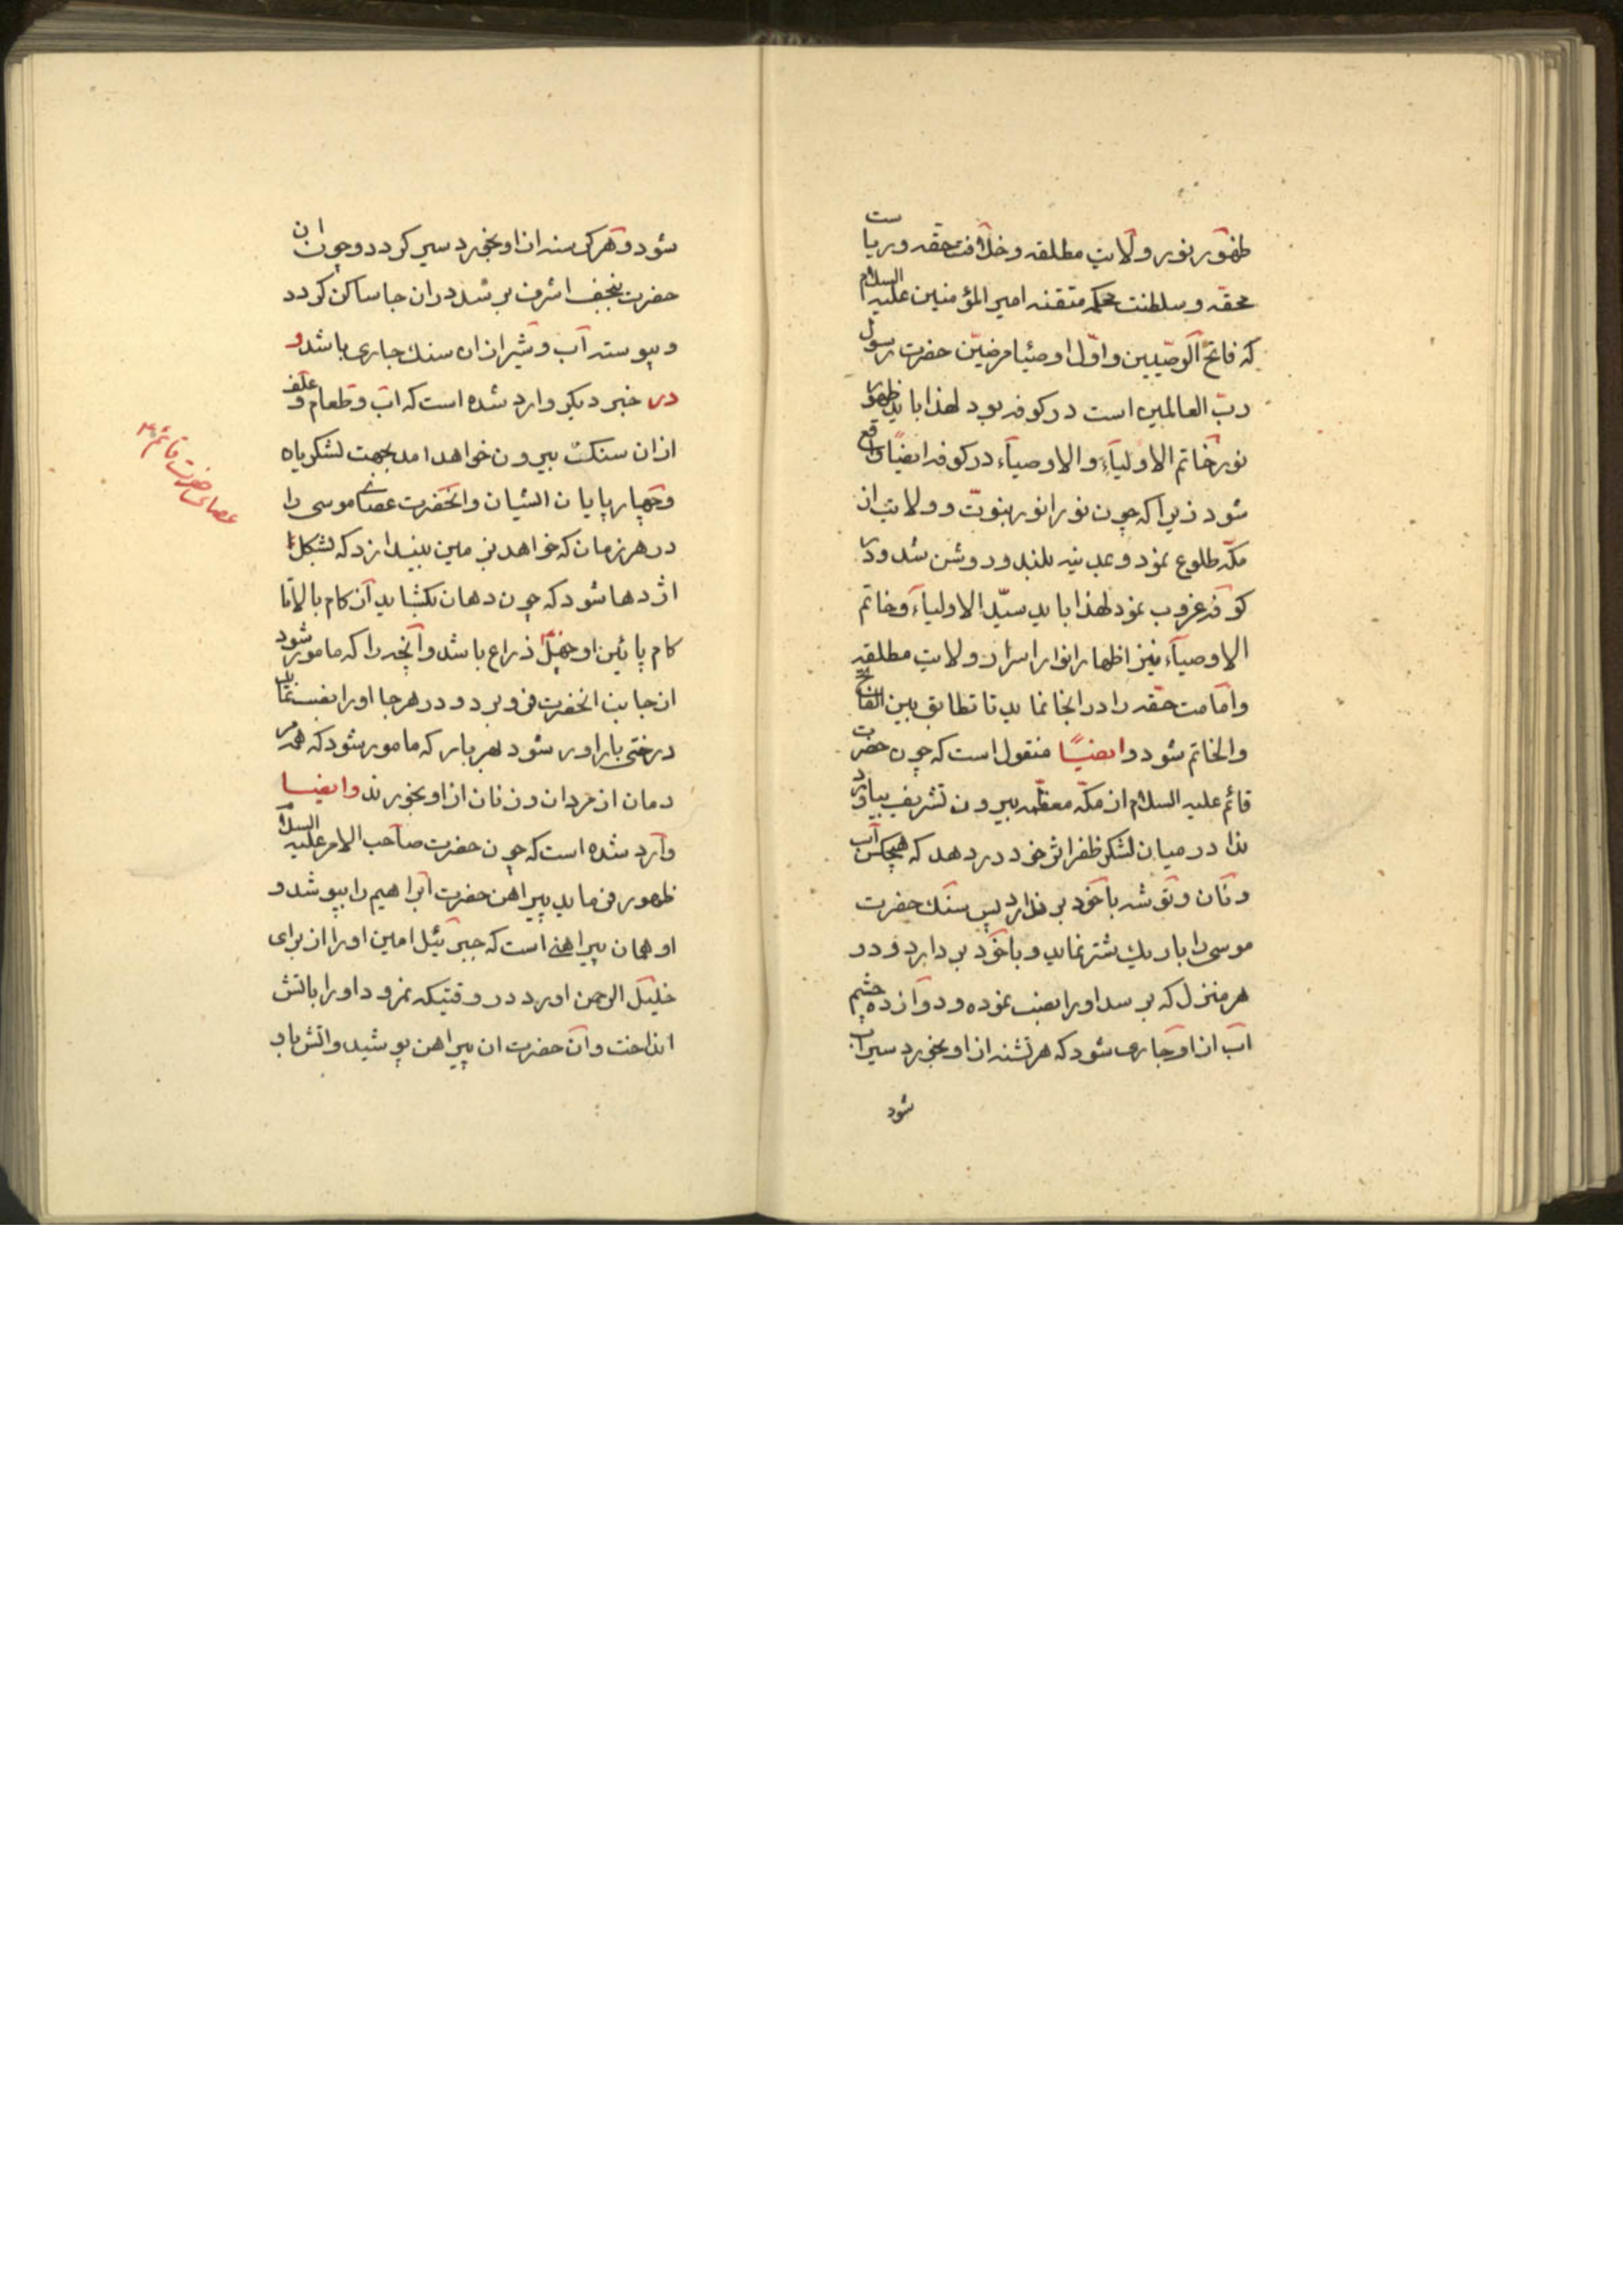 ظهور نور ولایت مطلقه و خلافت حقه و ریاست
محقه و سلطنت محکمه متقنه امیر المؤمنین علیه السلام
که فاتح الوصیین و اول اوصیا مرضیین حضرت رسول
رب العالمین است در کوفه بود لهذا باید ظهور
نور خاتم الاولیآء والاوصیآء در کوفه ایضا واقع
شود زیرا که چون نور انور نبوت و ولایت از
مکه طلوع نمود و بمدینه بلند و روشن شد و در
کوفه غروب نمود لهذا باید سید الاولیآء و خاتم
الاوصیآء نیز اظهار انوار اسرار ولایت مطلقه
و امامت حقه را در انجا نماید تا تطابق بین الفاتح
والخاتم شود وایضا منقول است که چون حضرت
قائم علیه السلام از مکه معظمه بیرون تشریف بیاورد
ندا در میان لشکر ظفر اثر خود در دهد که هیچکس آب
و نان و توشه با خود بر ندارد پس سنک حضرت
موسی را بار یک شتر نماید و با خود بر دارد و در
هر منزل که برسد او را نصب نموده و دوازده چشم
آب از او جاری شود که هر تشنه از او بخورد سیراب
شود
شود و هر کرسنه از او بخورد سیر کردد و چون ان
حضرت بنجف اشرف برسد در ان جا ساکن کردد
و پیوسته آب و شیر از ان سنک جاری باشد و
در خبر دیکر وارد شده است که اب و طعام و علف
از ان سنک بیرون خواهد امد بجهت لشکریان
و چهار پایان ایشان و انحضرت عصای موسی را
در هر زمان که خواهد بزمین بیندازد که بشکل
اژدها شود که چون دهان بکشاید از کام بالا تا
کام پائین او چهل ذراع باشد و آنچه را که مامور شود
از جانب انحضرت فرو برد و در هر جا او را نصب نماید
درختی باراور شود بهر بار که مامور شود که همه مر
دمان از مردان و زنان از او بخورند وایضا
وارد شده است که چون حضرت صاحب الامر علیه السلام
ظهور فرماید پیراهن حضرت ابراهیم را بپوشد و
او همان پیراهنی است که جبرئیل امین او را از برای
خلیل الرحمن اورد در وقتیکه نمرود او را باتش
انداخت و آن حضرت ان پیراهن پوشید و اتش باو
عصای حضرت قائم ع